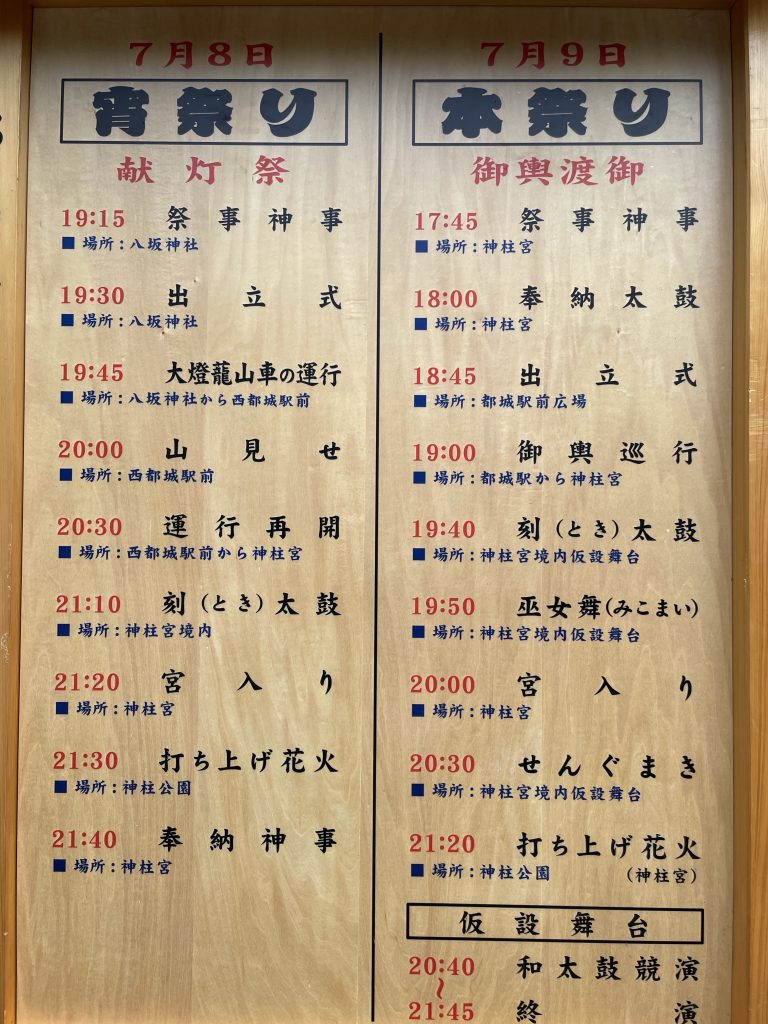 7月8日
宵祭り
献灯祭
19:15 祭事神事
■ 場所：八坂神社
19:30 出立式
■ 場所：八坂神社
19:45 大燈龍山車の運行
■ 場所：八坂神社から西都城駅前
20:00 山見せ
■ 場所：西都城駅前
20:30 運行再開
■ 場所：西都城駅前から神柱宮
21:10 刻(とき)太鼓
■ 場所：神柱宮境内
21:20 宮入り
■ 場所：神柱宮
21:30 打ち上げ花火
■ 場所：神柱公園
21:40 奉納神事
■ 場所：神柱宮
7月9日
本祭り
御輿渡御
17:45 祭事神事
■ 場所：神柱宮
18:00 奉納太鼓
■ 場所：神柱宮
18:45 出立式
■ 場所：都城駅前広場
19:00 御輿巡行
■ 場所：都城駅から神柱宮
19:40 刻(とき)太鼓
■ 場所：神柱宮境内仮設舞台
19:50 巫女舞(みこまい)
■ 場所：神柱宮境内仮設舞台
20:00 宮入り
■ 場所：神柱宮
20:30 せんぐまき
■ 場所：神柱宮境内仮設舞台
21:20 打ち上げ花火
■ 場所：神柱公園 (神柱宮)
仮設舞台
20:40 和太鼓競演
〜
21:45 終演